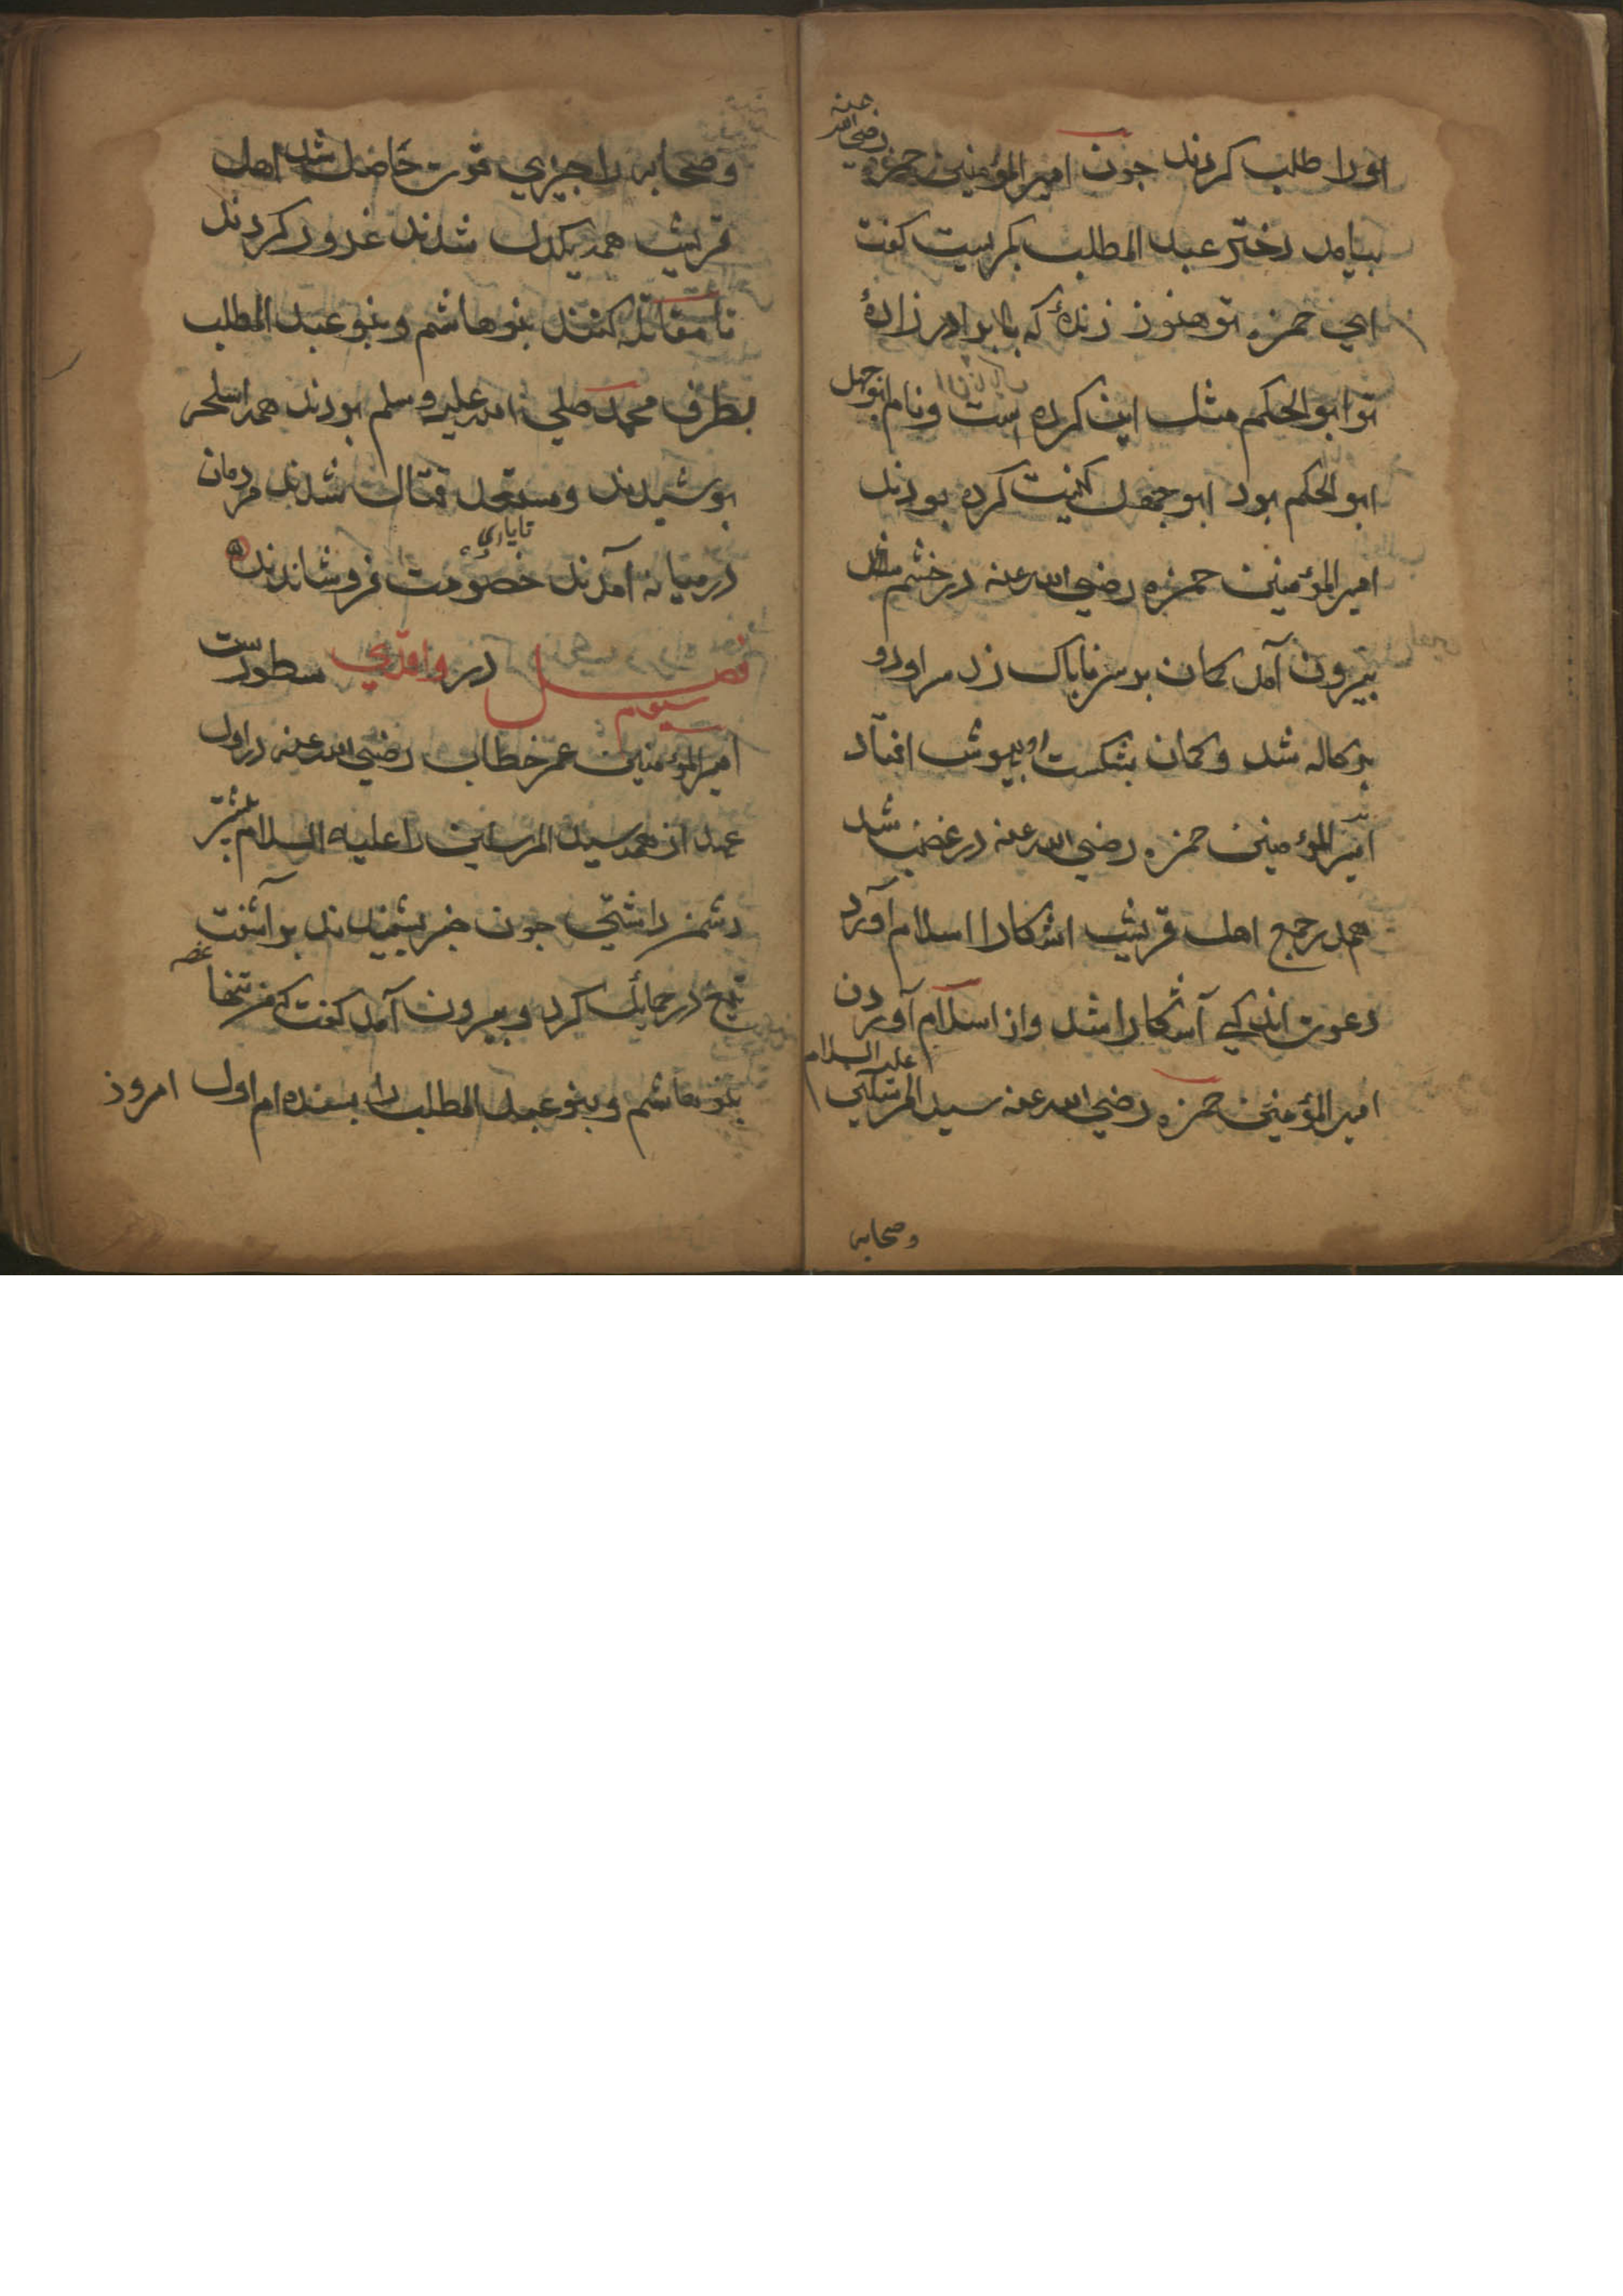 اورا طلب کردند جون امیر المؤمنین حمزه رضی الله عنه
بیامد دختر عبد المطلب بکریست کفت
ای حمزه تو هنوز زندهٔ که با برادر زادهٔ
تو ابو الحکم مثل این کرده است و نام ابوجهل
ابو الحکم بود ابو جهل کنیت کرده بودند
امیر المؤمنین حمزه رضی الله عنه در خشم شد
بیرون آمد کمان بر سر ناباک زد سر او دو
برکاله شد و کمان بشکست او بیهوش افتاد
امیر المؤمنین حمزه رضی الله عنه در غضب شد
همدر جمع اهل قریش اشکارا اسلام آورد
دعوت اندکی آشکارا شد و از اسلام آوردن
امیر المؤمنین حمزه رضی الله عنه سید المرسلین علیه السلام
وصحابه
وصحابه را جیزی قوت حاصل شد اهل
قریش همه یکدل شدند غدور کردند
تا مقاتله کنند بنو هاشم و بنو عبد المطلب
بطرف محمد صلی الله علیه وسلم بودند همه اسلحه
بوشیدند ومستعد قتال شدند مردمان
در میانه آمدند خصومت فرو شاندند
فصل سیوم در واقدی سطورست
امیر المؤمنین عمر خطاب رضی الله عنه در اول
عهد از همه سید المرسلین را علیه السلام بیشتر
دشمن داشتی جون خبر بشنیدند بر آشفت
تیغ در حمایل کرد و بیرون آمد کفت که من تنها
بنو هاشم و بنو عبد المطلب را بسنده ام اول امروز